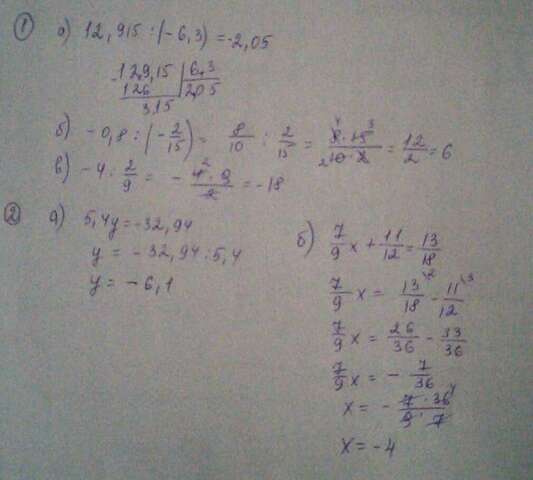 ① а) 12,915 : (-6,3) = -2,05
129,15 | 6,3
126 | 2,05
3,15
б) -0,8 : (-2/15) = 8/10 : 2/15 = 8·15/10·2 = 12/2 = 6
в) -4 : 2/9 = -4·9/2 = -18
② а) 5,4y = -32,94
y = -32,94 : 5,4
y = -6,1
б) 7/9 x + 11/12 = 13/18
7/9 x = 13/18 - 11/12
7/9 x = 26/36 - 33/36
7/9 x = - 7/36
x = - 7·36/9·7
x = -4